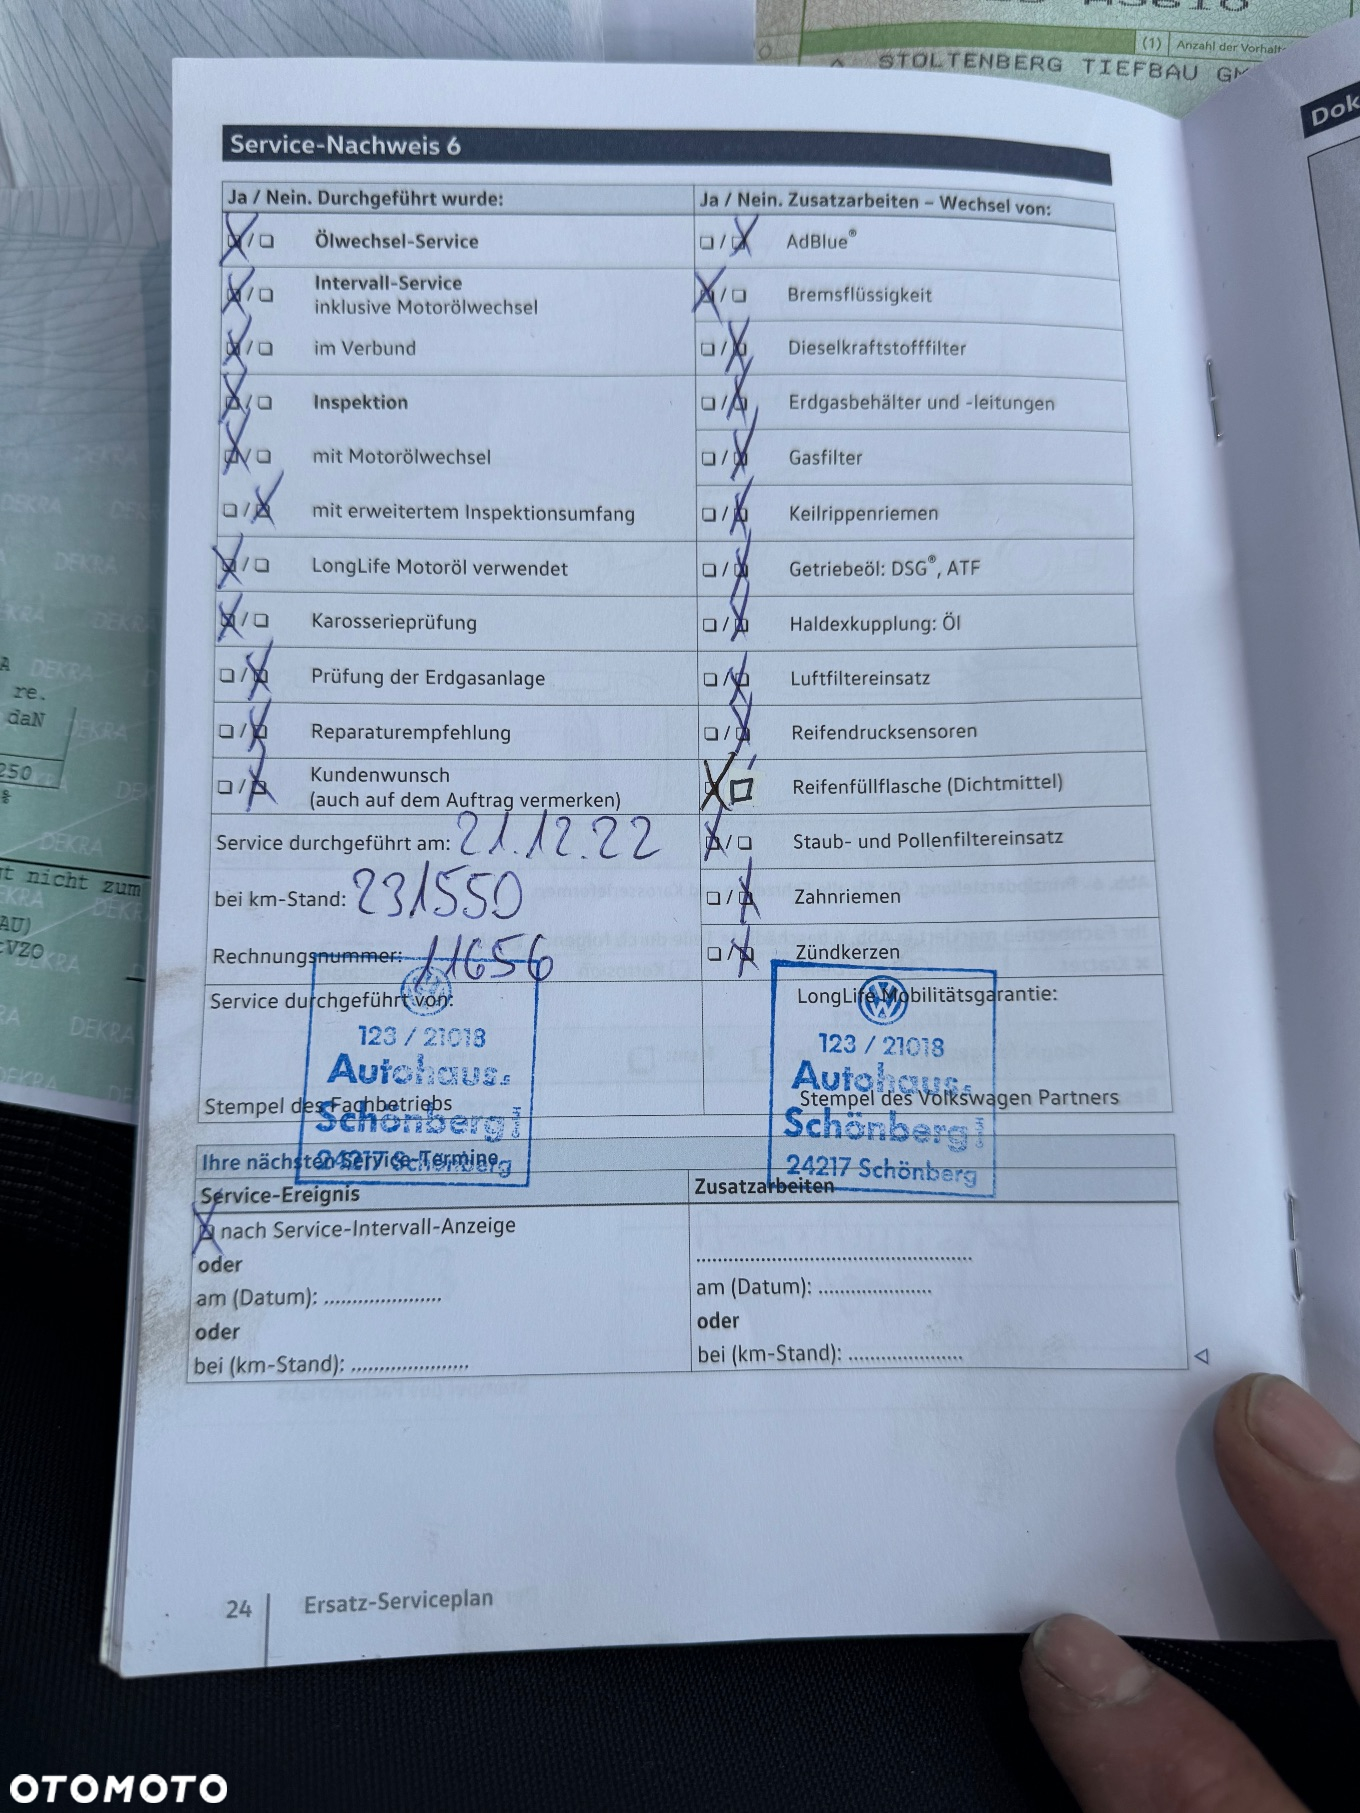 (1) Anzahl der Vorhalt
STOLTENBERG TIEFBAU GM
Dok
Service-Nachweis 6
Ja / Nein. Durchgeführt wurde:
Ölwechsel-Service
Intervall-Service
inklusive Motorölwechsel
im Verbund
Inspektion
mit Motorölwechsel
mit erweitertem Inspektionsumfang
LongLife Motoröl verwendet
Karosserieprüfung
Prüfung der Erdgasanlage
Reparaturempfehlung
Kundenwunsch
(auch auf dem Auftrag vermerken)
Service durchgeführt am: 21.12.22
bei km-Stand: 231550
Rechnungsnummer: 11656
Service durchgeführt von:
123 / 21018
Autohaus
Schönberg
24217 Schönberg
Stempel des Fachbetriebs
Ja / Nein. Zusatzarbeiten – Wechsel von:
AdBlue®
Bremsflüssigkeit
Dieselkraftstofffilter
Erdgasbehälter und -leitungen
Gasfilter
Keilrippenriemen
Getriebeöl: DSG®, ATF
Haldexkupplung: Öl
Luftfiltereinsatz
Reifendrucksensoren
Reifenfüllflasche (Dichtmittel)
Staub- und Pollenfiltereinsatz
Zahnriemen
Zündkerzen
LongLife Mobilitätsgarantie:
123 / 21018
Autohaus
Schönberg
24217 Schönberg
Stempel des Volkswagen Partners
Ihre nächsten Service-Termine
Service-Ereignis
nach Service-Intervall-Anzeige
oder
am (Datum): .....................
oder
bei (km-Stand): .....................
Zusatzarbeiten
..................................................
am (Datum): .....................
oder
bei (km-Stand): .....................
24 Ersatz-Serviceplan
DEKRA
re.
daN
250
%
t nicht zum
AU)
VZO
OTOMOTO